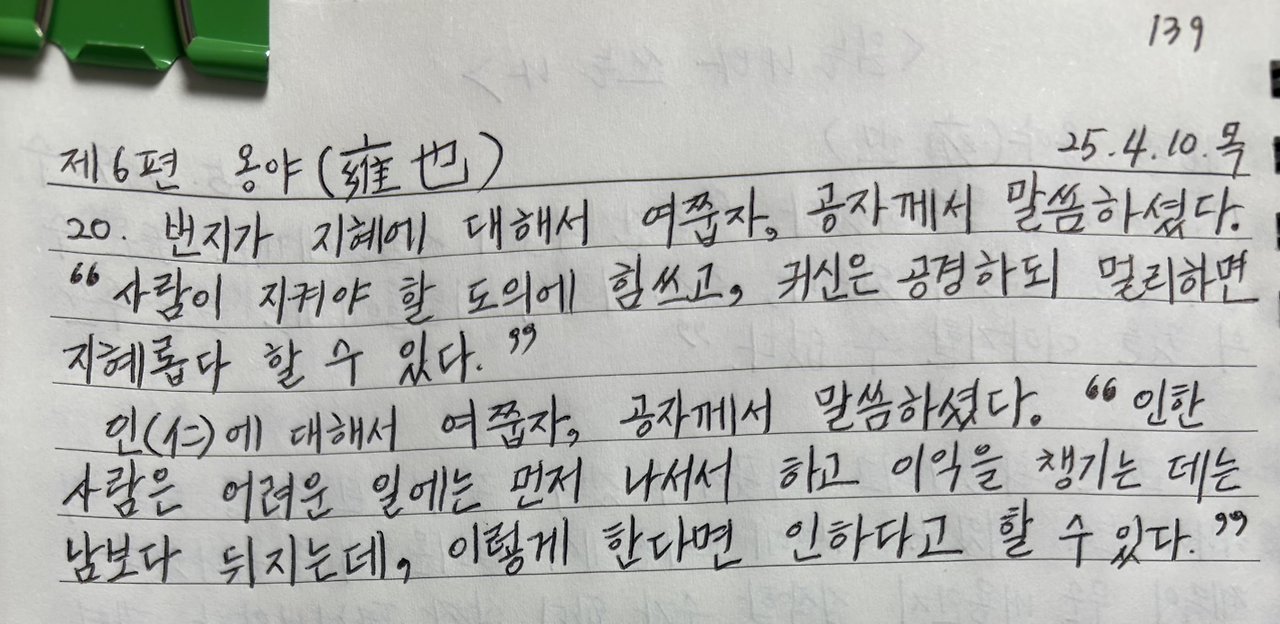 139
제6편 옹야(雍也) 25.4.10.목
20. 번지가 지혜에 대해서 여쭙자, 공자께서 말씀하셨다.
“사람이 지켜야 할 도의에 힘쓰고, 귀신은 공경하되 멀리하면
지혜롭다 할 수 있다.”
인(仁)에 대해서 여쭙자, 공자께서 말씀하셨다. “인한
사람은 어려운 일에는 먼저 나서서 하고 이익을 챙기는 데는
남보다 뒤지는데, 이렇게 한다면 인하다고 할 수 있다.”